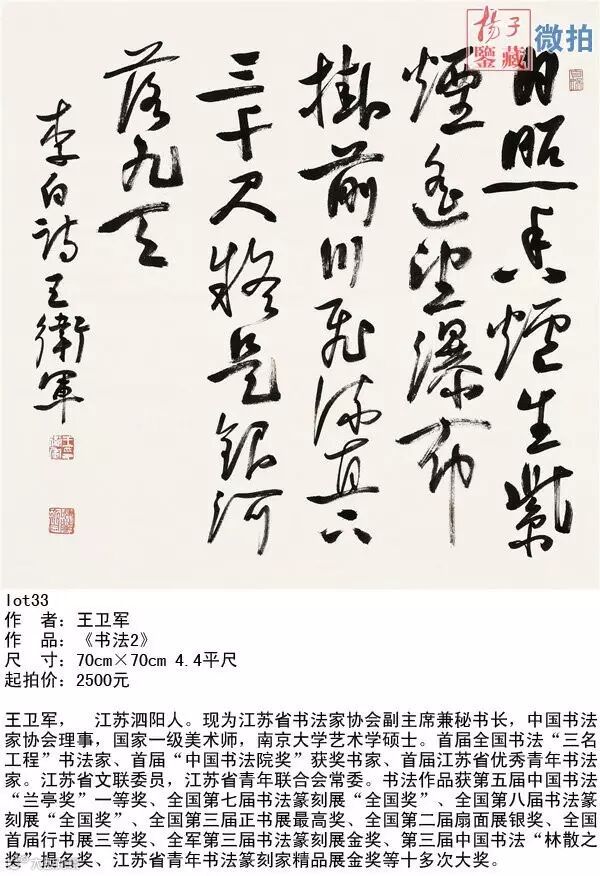 杨子
鉴藏
微拍
日照香爐生紫
煙遙望瀑布
掛前川飛流直下
三千尺疑是銀河
落九天
李白詩王衛軍
lot33
作 者：王卫军
作 品：《书法2》
尺 寸：70cm×70cm 4.4平尺
起拍价：2500元
王卫军， 江苏泗阳人。现为江苏省书法家协会副主席兼秘书长，中国书法
家协会理事，国家一级美术师，南京大学艺术学硕士。首届全国书法“三名
工程”书法家、首届“中国书法院奖”获奖书家、首届江苏省优秀青年书法
家。江苏省文联委员，江苏省青年联合会常委。书法作品获第五届中国书法
“兰亭奖”一等奖、全国第七届书法篆刻展“全国奖”、全国第八届书法篆
刻展“全国奖”、全国第三届正书展最高奖、全国第二届扇面展银奖、全国
首届行书展三等奖、全军第三届书法篆刻展金奖、第三届中国书法“林散之
奖”提名奖、江苏省青年书法篆刻家精品展金奖等十多次大奖。